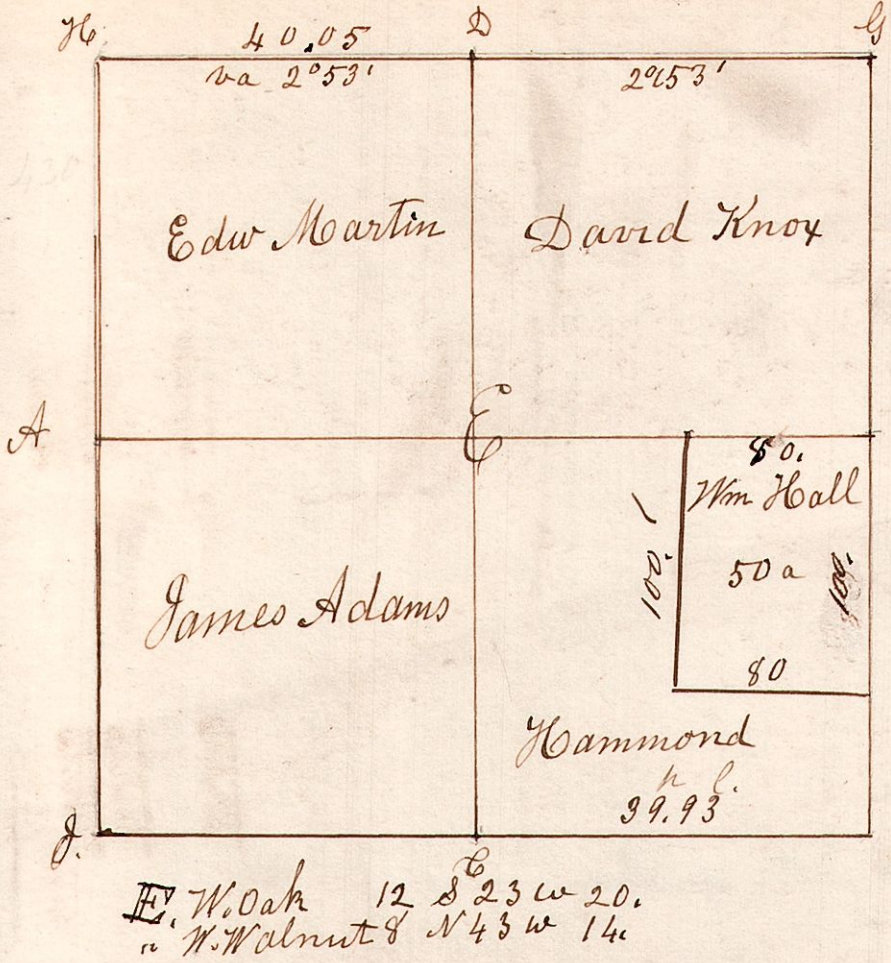 H 40.05 D G
va 2°53' 2°53'
Edw Martin David Knox
A E
80.
Wm Hall
100. 50 a 100.
James Adams
80
Hammond
39.93
J. C
E. W.Oak 12 S 23 w 20.
" W.Walnut 8 N 43 w 14.